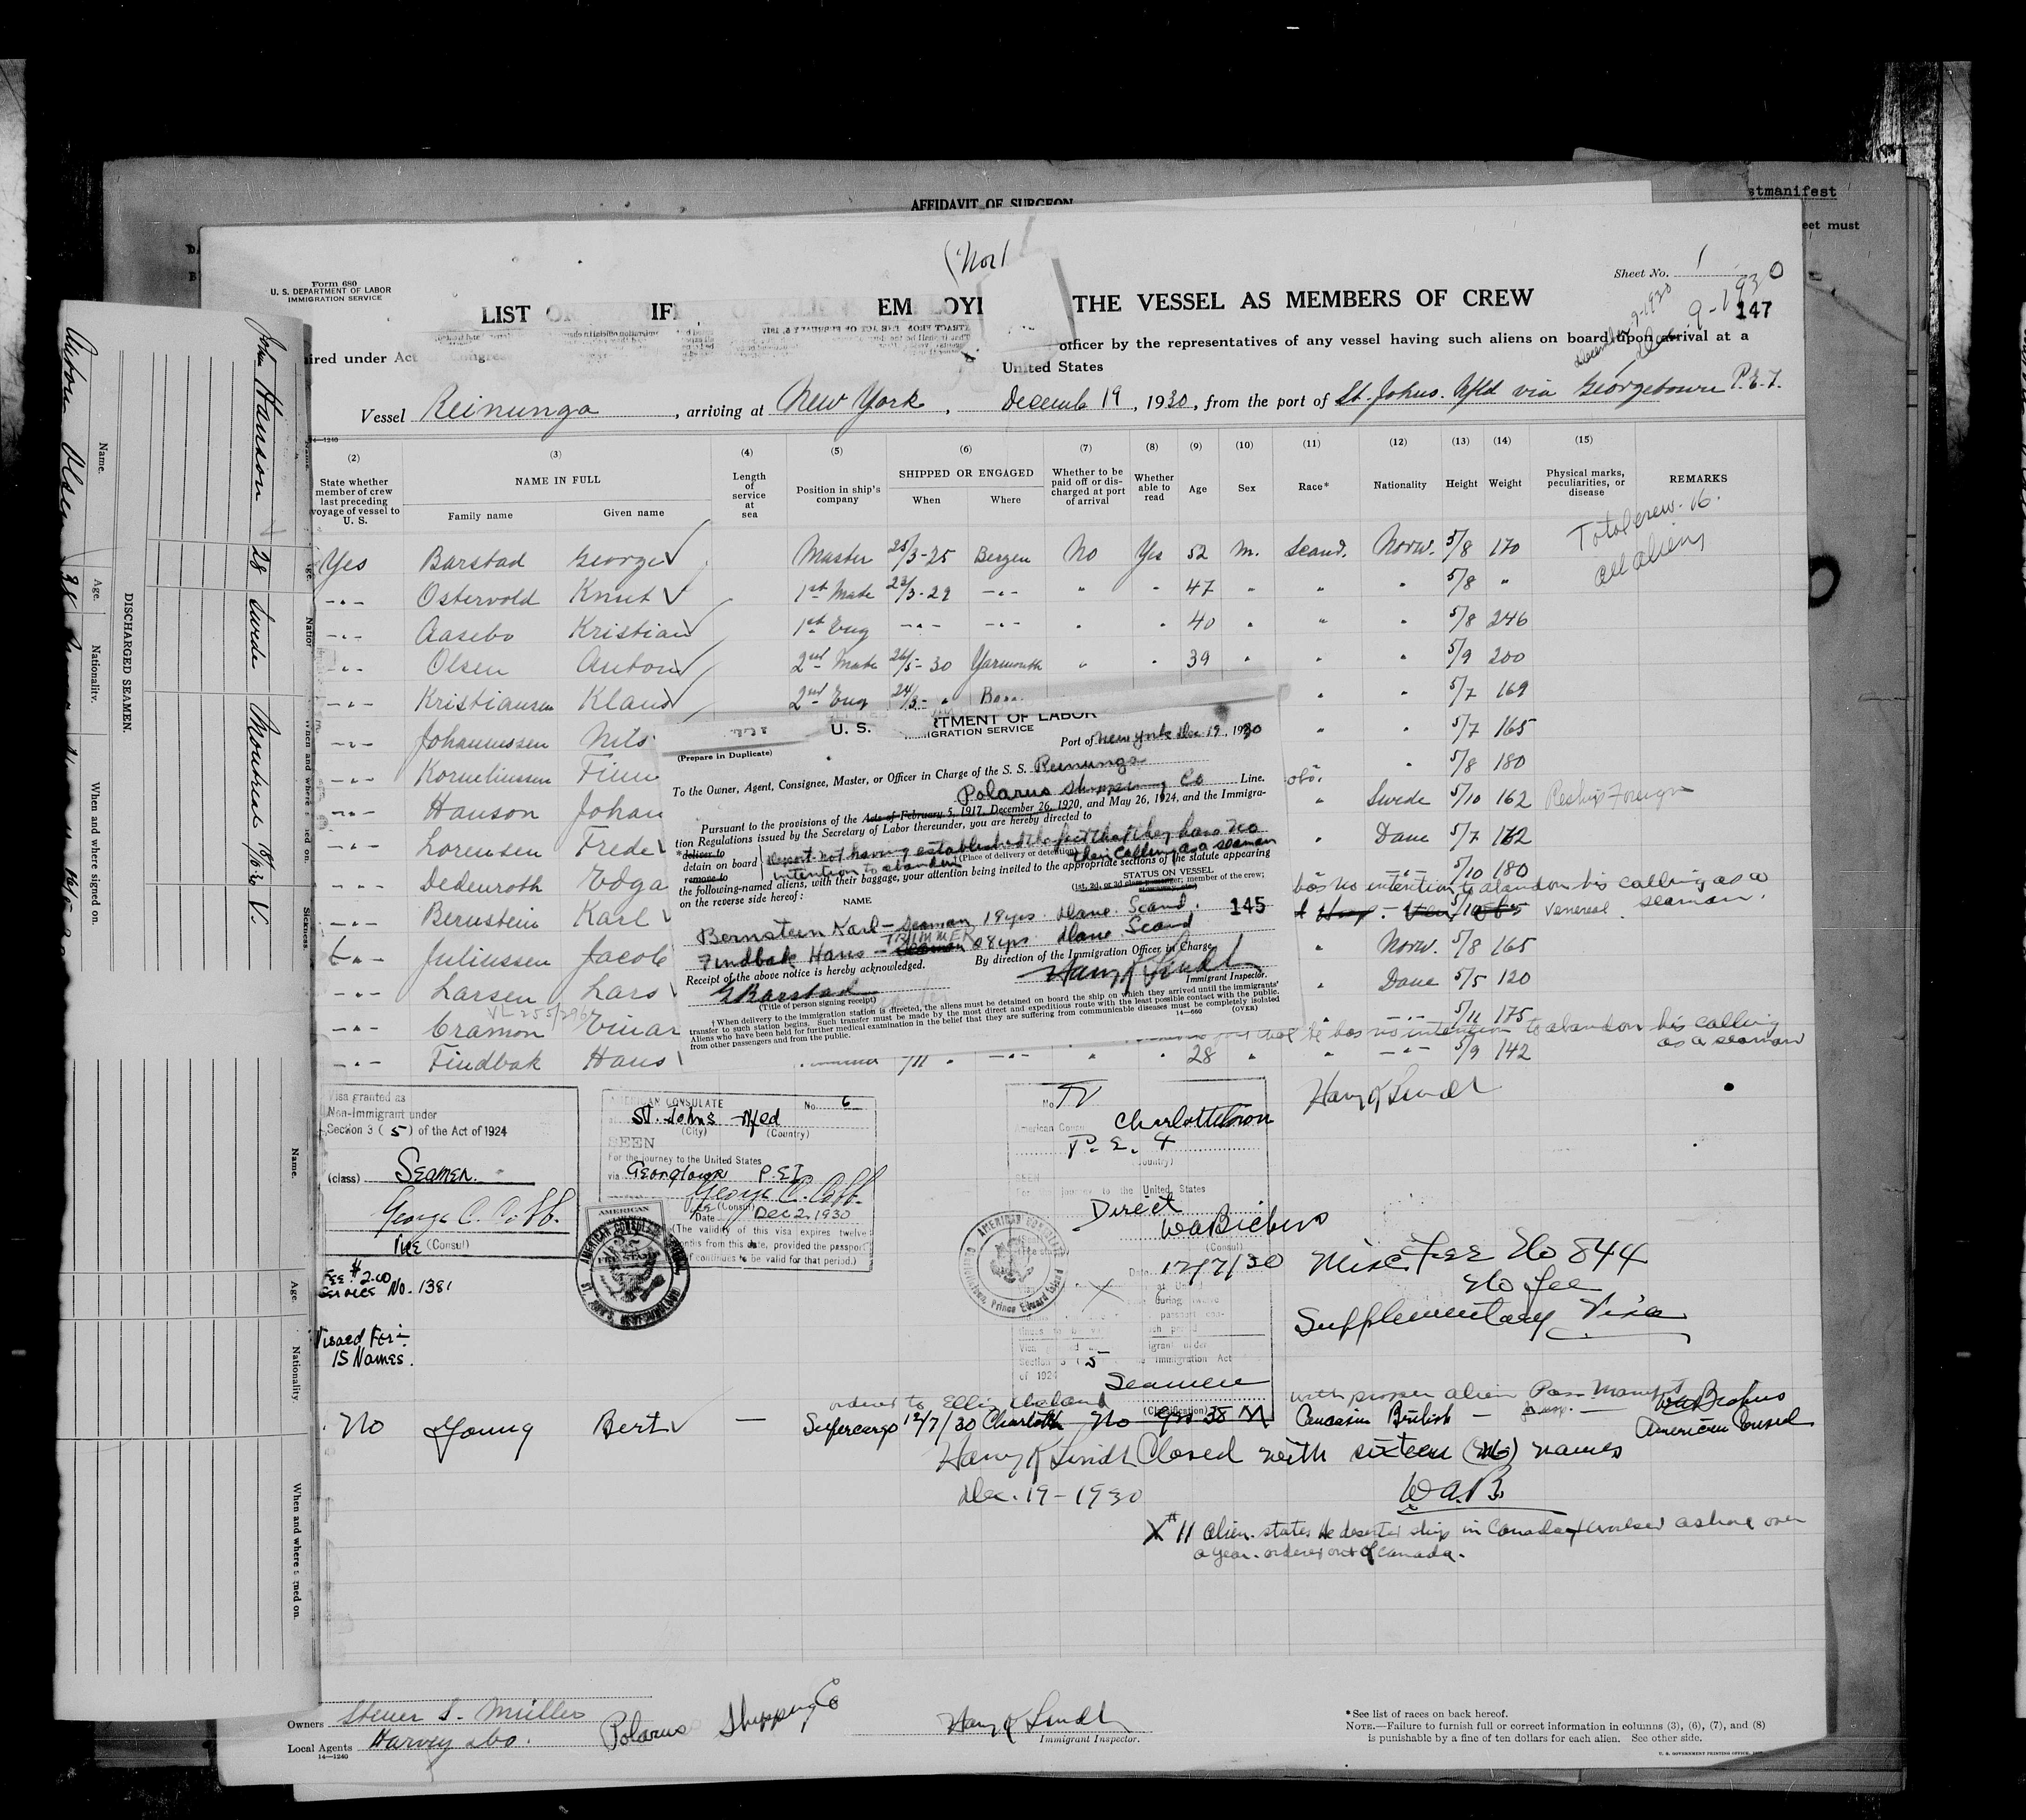 stmanifest
AFFIDAVIT OF SURGEON
eet must
(Nor)
Form 680
U. S. DEPARTMENT OF LABOR
IMMIGRATION SERVICE
Sheet No. 1
9-1930
147
LIST O IFI EM LOYI THE VESSEL AS MEMBERS OF CREW
ired under Act Congres officer by the representatives of any vessel having such aliens on board upon arrival at a
United States
Vessel Reinunga, arriving at New York, Decemb 19, 1930, from the port of St. Johns. Nfld via Georgetown P.E.I.
14—1240
(2) (3) (4) (5) (6) (7) (8) (9) (10) (11) (12) (13) (14) (15)
State whether member of crew last preceding voyage of vessel to U. S.
NAME IN FULL
Family name Given name
Length of service at sea
Position in ship's company
SHIPPED OR ENGAGED
When Where
Whether to be paid off or discharged at port of arrival
Whether able to read
Age Sex Race* Nationality Height Weight
Physical marks, peculiarities, or disease
REMARKS
Total crew. 16.
all aliens
Yes Barstad George Master 25/3-25 Bergen No Yes 52 m. Scand. Norw. 5/8 170
-"- Ostervold Knut 1st Mate 22/3-29 -"- " " 47 " " " 5/8 "
-"- Aasebo Kristian 1st Eng -"- -"- " " 40 " " " 5/8 246
-"- Olsen Anton 2nd Mate 26/5-30 Yarmouth " " 39 " " " 5/9 200
-"- Kristiansen Klaus 2nd Eng 24/3- " " " 5/7 169
-"- Johannessen Nils " " 5/7 165
-"- Korneliussen Finn " 5/8 180
-"- Hanson Johan " Swede 5/10 162 Reship Foreign
-"- Lorensen Frede " Dane 5/7 172
-"- Dedenroth Edga -"- 5/10 180
has no intention to abandon his calling as a
seaman.
-"- Bernstein Karl Venereal
-"- Juliussen Jacob " Norw. 5/8 165
-"- Larsen Lars " Dane 5/5 120
-"- Cramon Einar -"- 5/11 175
he has no intention to abandon his calling
as a seaman
-"- Findbak Hans -"- " " 28 " " -"- 5/9 142
Harry K Lindt
U. S. RTMENT OF LABOR
IGRATION SERVICE
(Prepare in Duplicate)
Port of New York Dec 19, 1930
To the Owner, Agent, Consignee, Master, or Officer in Charge of the S. S. Reinunga
Polarus Shipping Co Line.
Pursuant to the provisions of the Acts of February 5, 1917, December 26, 1920, and May 26, 1924, and the Immigra-
tion Regulations issued by the Secretary of Labor thereunder, you are hereby directed to
*deliver to
detain on board not having established the fact that they have no
remove to intention to abandon (Place of delivery or detention) their calling as a seaman
the following-named aliens, with their baggage, your attention being invited to the appropriate sections of the statute appearing
on the reverse side hereof:
STATUS ON VESSEL
(1st, 2d, or 3d class passenger; member of the crew;
NAME
Bernstein Karl - Seaman 19 yrs. Dane. Scand. 145
Findbak Hans - TRIMMER 28 yrs Dane Scand
By direction of the Immigration Officer in Charge.
Receipt of the above notice is hereby acknowledged.
Harry K Lindt
Immigrant Inspector.
G Barstad
(Title of person signing receipt)
†When delivery to the immigration station is directed, the aliens must be detained on board the ship on which they arrived until the immigrants'
transfer to such station begins. Such transfer must be made by the most direct and expeditious route with the least possible contact with the public.
Aliens who have been held for further medical examination in the belief that they are suffering from communicable diseases must be completely isolated
from other passengers and from the public.
14—660 (OVER)
Visa granted as
Non-Immigrant under
Section 3 (5) of the Act of 1924
(class) Seamen.
George C. Cobb.
Vice (Consul)
Fee $2.00
Service No. 1381
Visaed For:-
15 Names.
AMERICAN CONSULATE No. 6
St. Johns Nfld
(City) (Country)
SEEN
For the journey to the United States
via Georgetown P.E.I.
George C. Cobb.
Vice (Consul)
Date Dec 2, 1930
(The validity of this visa expires twelve
months from this date, provided the passport
continues to be valid for that period.)
AMERICAN CONSULATE
ST. JOHN'S, NEWFOUNDLAND
No. IV
American Cons Charlottetown
P. E. I
ountry)
SEEN
For the journey to the United States
Direct
(Consul)
Date 12/7/30
AMERICAN CONSULATE
Charlottetown, Prince Edward Island
Section 3 (5 Immigration Act
of 1924
Seamen
(Classification)
Misc. Fee No 844
No fee
Supplementary Visa
ordered to Ellis Island
with proper alien
No Young Bert — Supercargo 12/7/30 Charlotte No Yes 38 M Caucasian British —
American Consul
Harry K Lindt Closed with sixteen (16) names
Dec. 19-1930
W.A.B.
X #11 alien states he deserted ship in Canada worked ashore over
a year. ordered out of Canada.
Owners Stener S. Müller
Local Agents Harvey & Co.
14—1240
Polarus Shipping Co
Harry K Lindt
Immigrant Inspector.
*See list of races on back hereof.
NOTE.—Failure to furnish full or correct information in columns (3), (6), (7), and (8)
is punishable by a fine of ten dollars for each alien. See other side.
U. S. GOVERNMENT PRINTING OFFICE
DISCHARGED SEAMEN.
Name. Age. Nationality. When and where signed on.
Anton Olsen
John Hanson 28 Swede Montreal
Sickness.
Name. Age. Nationality. When and where signed on.